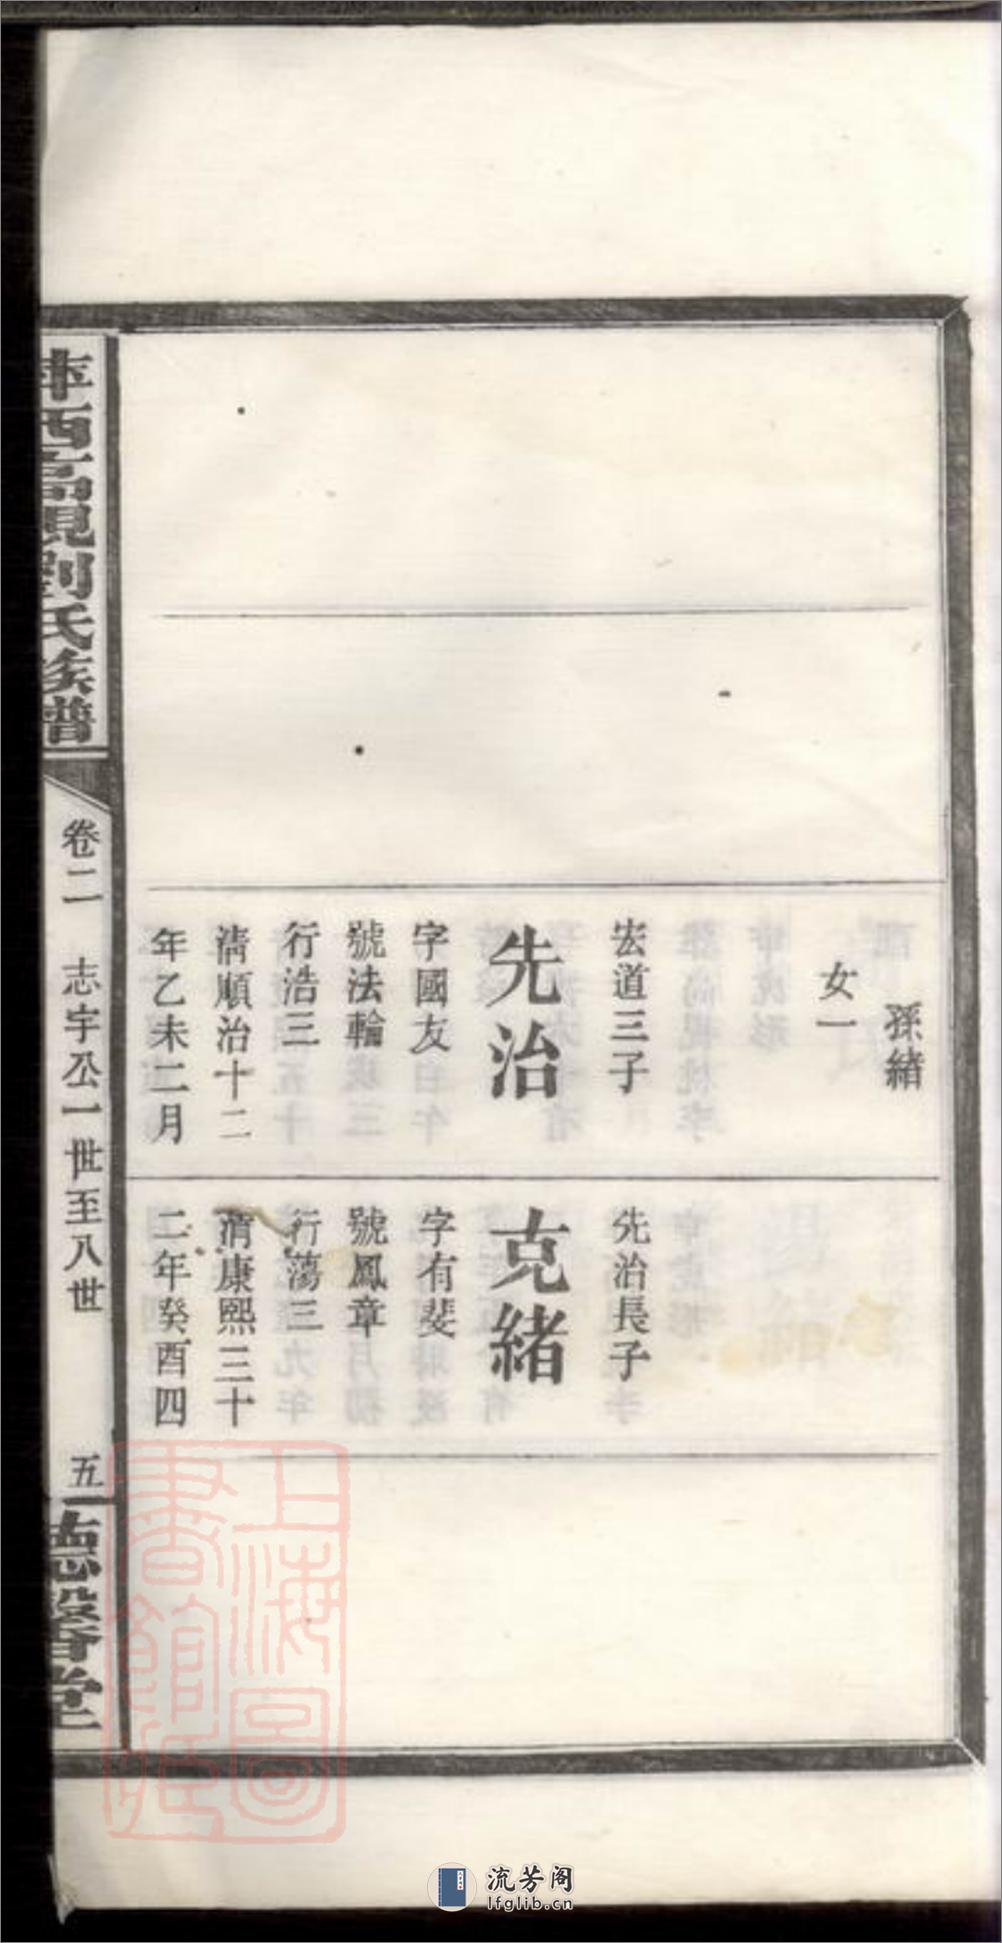 孫緒
女一
宏道三子
先治
字國友
號法輪
行浩三
清順治十二
年乙未二月
先治長子
克緒
字有斐
號鳳章
行蕩三
清康熙三十
二年癸酉四
萍西高視劉氏族譜
卷二 志宇公一世至八世 五
德馨堂
上海圖
書館藏
流芳阁
lfglib.cn